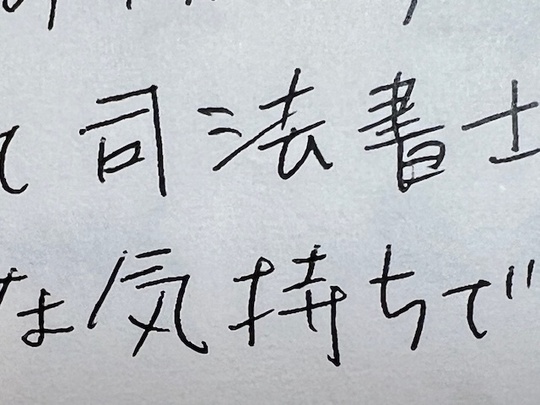 司法書士
な気持ちで